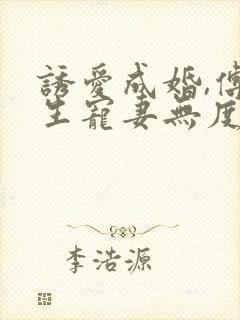 誘愛成婚,傅
生寵妻無度
李浩源